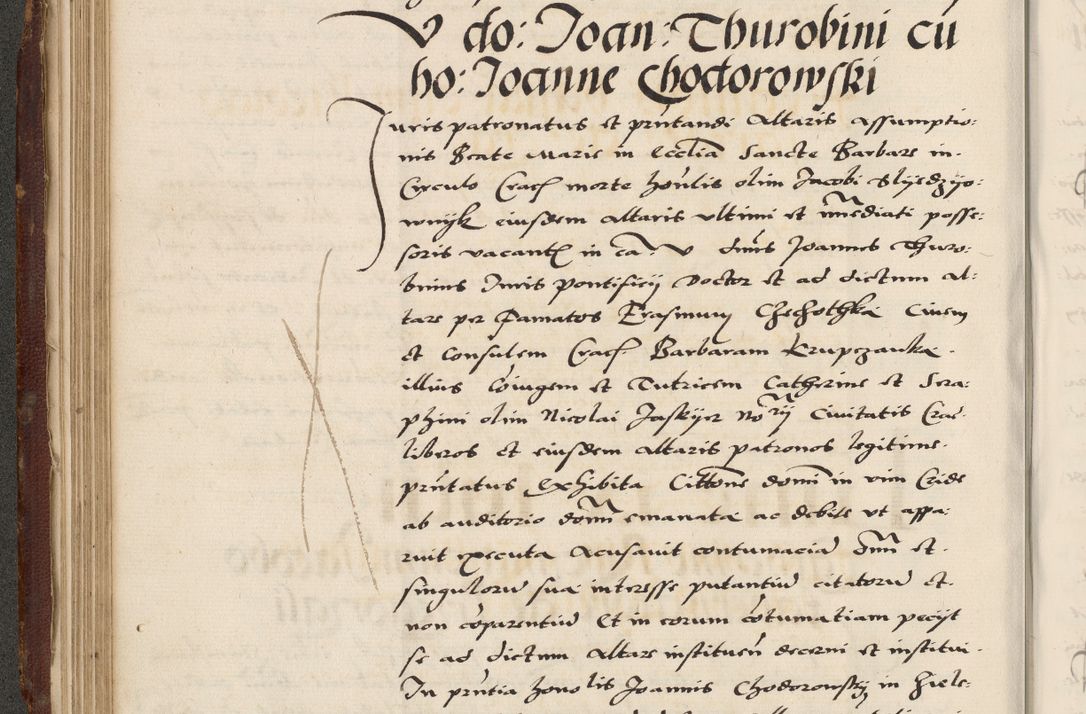 V do: Joan: Thurobini cū
ho: Joanne Chodorowski
Juris patronatus et prntandi Altaris Assumptio:
nis Beate Marie in Ecclia Sancte Barbare in
Cyrculo Crac morte honlis olim Jacobi Slyedzyo:
wnyk eiusdem altaris ultimi et immediati posse:
soris vacante in ca V dnus Joannes Thuro:
binus Juris pontificij Doctor et ad dictum al:
tare per Famatos Erasmum Chechothka Civem
et Consulem Crac Barbaram Krupczanka
illius coiugem et Tutricem Catherine et Sera:
phini olim Nicolai Jaskyer norij Civitatis Crac:
liberos et eiusdem altaris patronos legitime
prntatus exhibita Cittone domi in vim Cride
ab auditorio domi emanata ac debite ut appa:
ruit executa Acusavit contumacia omni et
singuloru sua interesse putantiu citatoru et
non coparentiu Et in eorum cotumatiam peciyt
se ad dictum altare instituen decerni et institui
In prntia honolis Joannis Chodorowsky in Hiele: